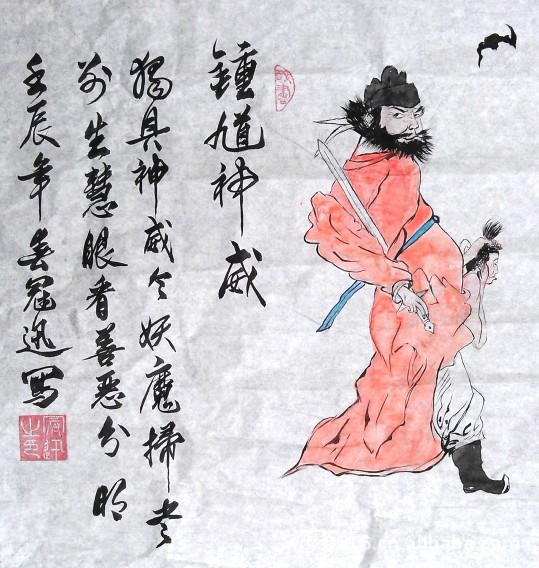 鍾馗神威
獨具神威令妖魔掃
别生慧眼看善惡分明
壬辰年春冠迅寫